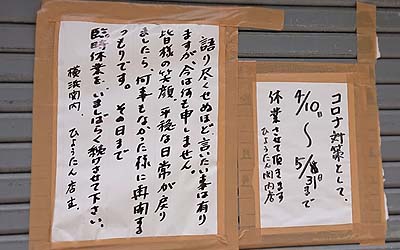 語り尽くせぬほど、言いたい事は有り
ますが、今は何も申しません。
皆様の笑顔、平穏な日常が戻り
ましたら、何事もなかった様に再開する
つもりです。その日まで
臨時休業を、いましばらく続けさせて下さい。
横浜関内、ひょうたん店主。
コロナ対策として、
4/10日
〜
5/31日まで
休業させて頂きます
ひょうたん関内店